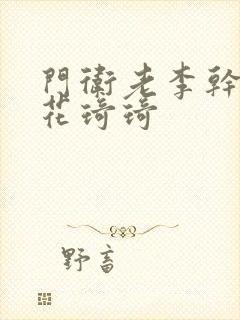 門衛老李幹
花琦琦
野畜